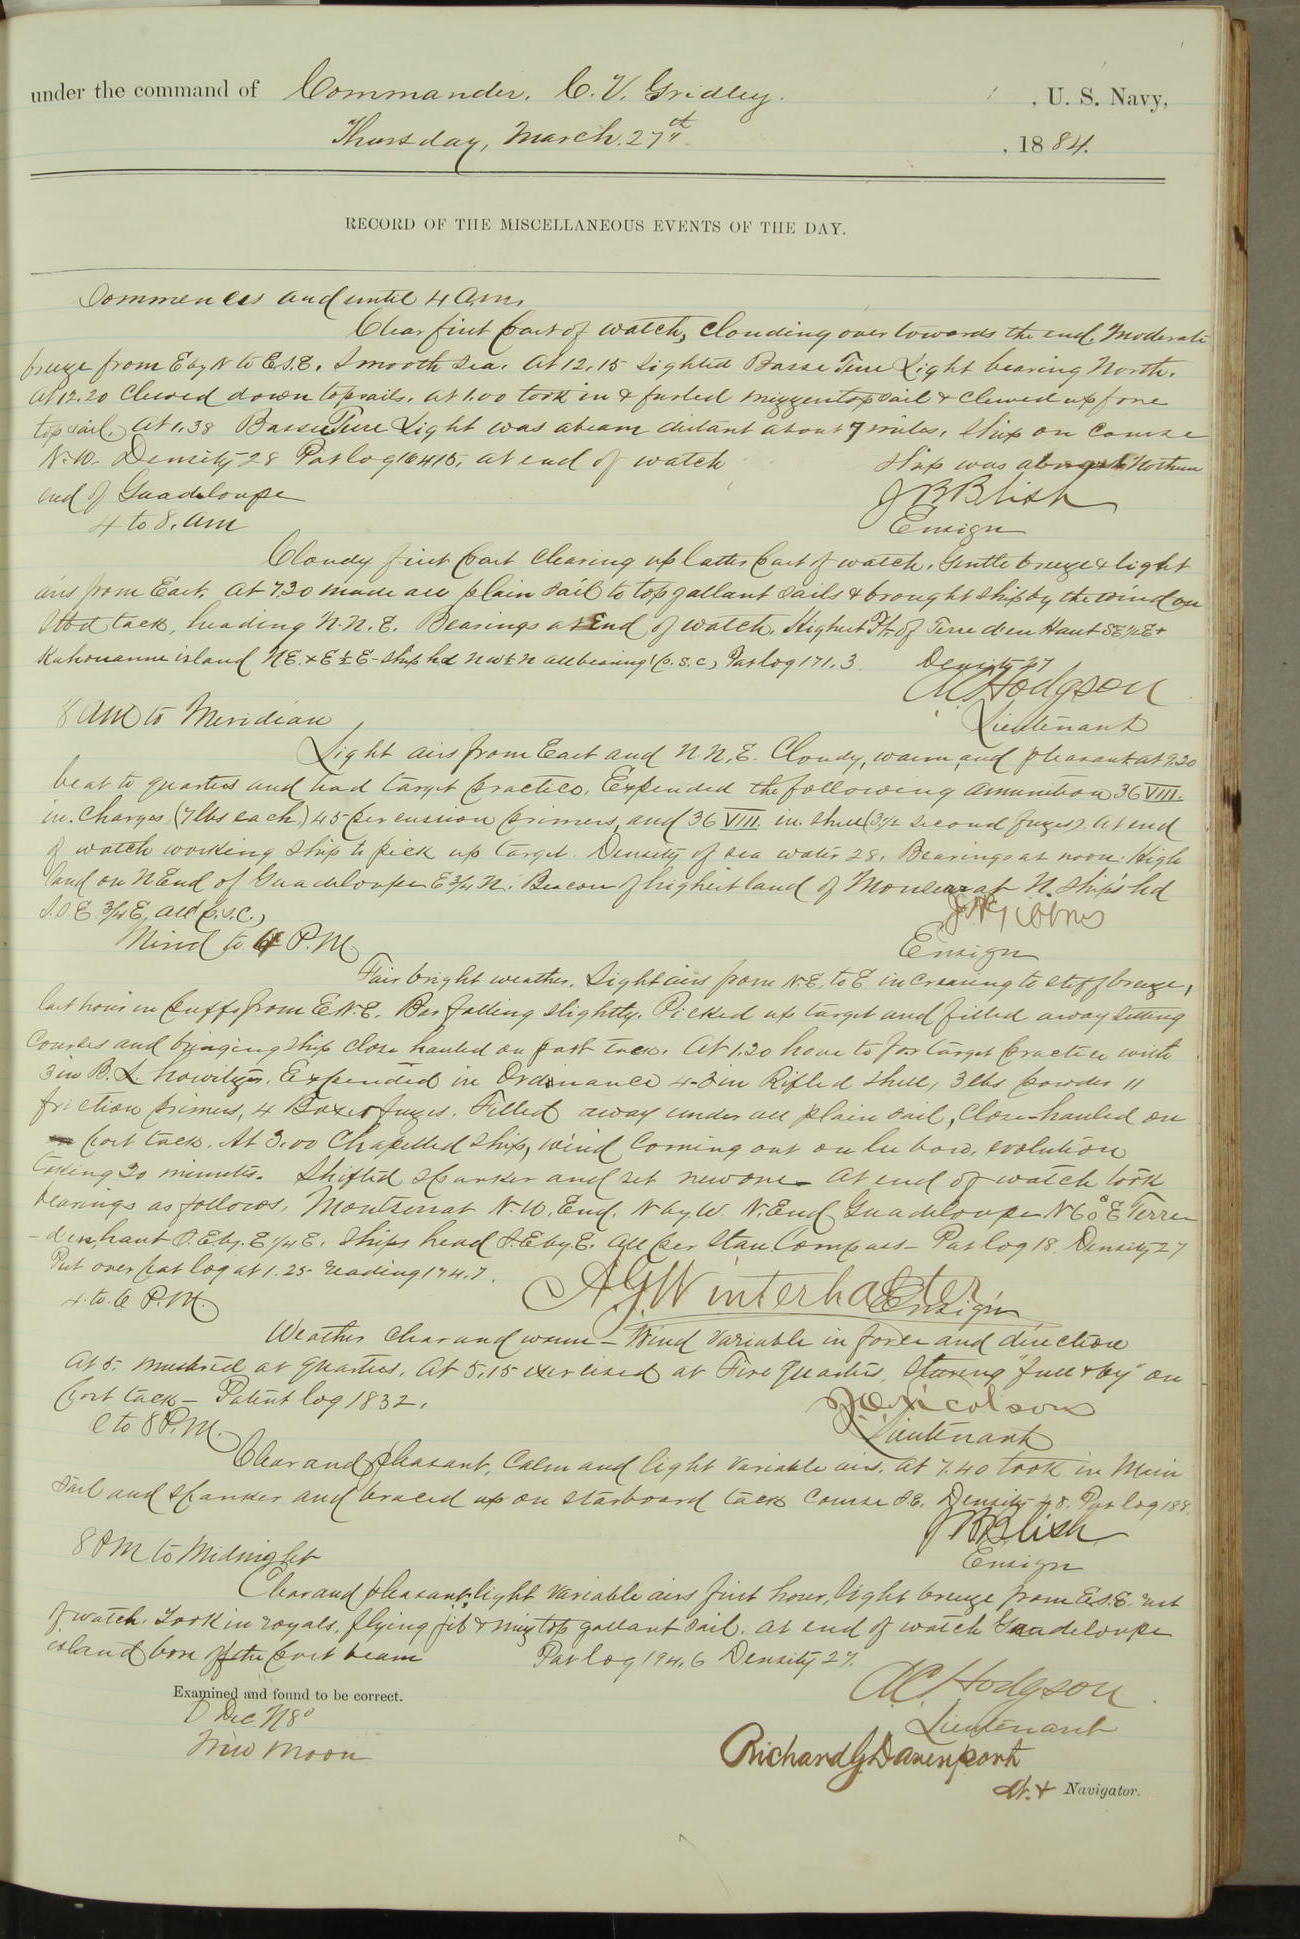 under the command of Commander. C. V. Gridley. , U. S. Navy,
Thursday, March. 27th , 1884.
RECORD OF THE MISCELLANEOUS EVENTS OF THE DAY.
Commences and until 4 a.m.
Clear first part of watch, clouding over towards the end. Moderate
breeze from E by N to E.S.E. Smooth sea. At 12.15 sighted Basse Terre Light bearing North.
At 12.20 clewed down topsails. at 1.00 took in & furled mizzentopsail & clewed up fore
topsail. At 1.38 Basse Terre Light was abeam distant about 7 miles. Ship on course
N.W. Density 28 Pat log 164.15. at end of watch ship was abreast Northern
end of Guadeloupe
J B Blish
Ensign
4 to 8. am
Cloudy first part clearing up latter part of watch. Gentle breeze & light
airs from East. At 7.30 made all plain sail to topgallant sails & brought ship by the wind on
Stbd tack, heading N.N.E. Bearings at End of watch. Highest Pt. of Terre d'en Haut SE½E &
Kahouanne island NE. x E ½ E - Ship hd NW½N all bearings (p.s.c) Pat log 171.3 Density 27
A C Hodgson
Lieutenant
8 AM to Meridian
Light airs from East and N.N.E. Cloudy, warm, and pleasant at 9.30
beat to quarters and had target practice. Expended the following amunition 36 VIII.
in. charges (7 lbs each) 45 percussion primers, and 36 VIII. in. shell (3½ second fuzes). At end
of watch working ship to pick up target. Density of sea water 28. Bearings at noon: High
land on N End of Guadeloupe E¾N. Beacon of highest land of Monserrat N. Ship's hd
S.S.E. ¾ E. all p.s.c.,
Ensign
Mind to 4 P.M.
Fair bright weather. Light airs from N.E. to E increasing to stiff breeze,
last hour in puffs from E.N.E. Bar falling slightly. Picked up target and filled away setting
courses and bringing ship close hauled on port tack. At 1.20 hove to for target practice with
3 in B. L howitzer. Expended in Ordinance 4-3in Rifled shell, 3 lbs powder 11
friction primers, 4 Boxer fuzes. Filled away under all plain sail, close-hauled on
port tack. At 3.00 Chapelled ship, wind coming out on lee bow, evolution
taking 30 minutes. Shifted spanker and set new one - At end of watch took
bearings as follows. Montserrat N.W. End. N by W. N. End Guadeloupe N60°E Terre
- den, haut S.E by. E ¼ E. Ships head S.E by E. all per Stan Compass - Pat log 18. Density 27
Put over pat log at 1.25 reading 174.7.
A.G Winterhalter
Ensign
4. to. 6 P.M.
Weather clear and warm - Wind variable in force and direction
At 5. mustered at quarters. At 5.15 exercised at Fire quarters. Steering "full & by" on
port tack - Patent log 183 2.
Lieutenant
6 to 8 P.M.
Clear and pleasant, calm and light variable airs. At 7.40 took in Main
sail and spanker and braced up on starboard tack course S.E. Density 28. Pat log 188.
J B Blish
Ensign
8 PM to Midnight
Clear and pleasant, light variable airs first hour, light breeze from E.S.E. rest
of watch. Took in royals, flying jib & miz top gallant sail. At end of watch Guadeloupe
island bore off the port beam Pat log 194.6 Density 27.
A C Hodgson
Lieutenant
Examined and found to be correct.
Dec. N 8°
New Moon
Richard G Davenport
Lt. & Navigator.